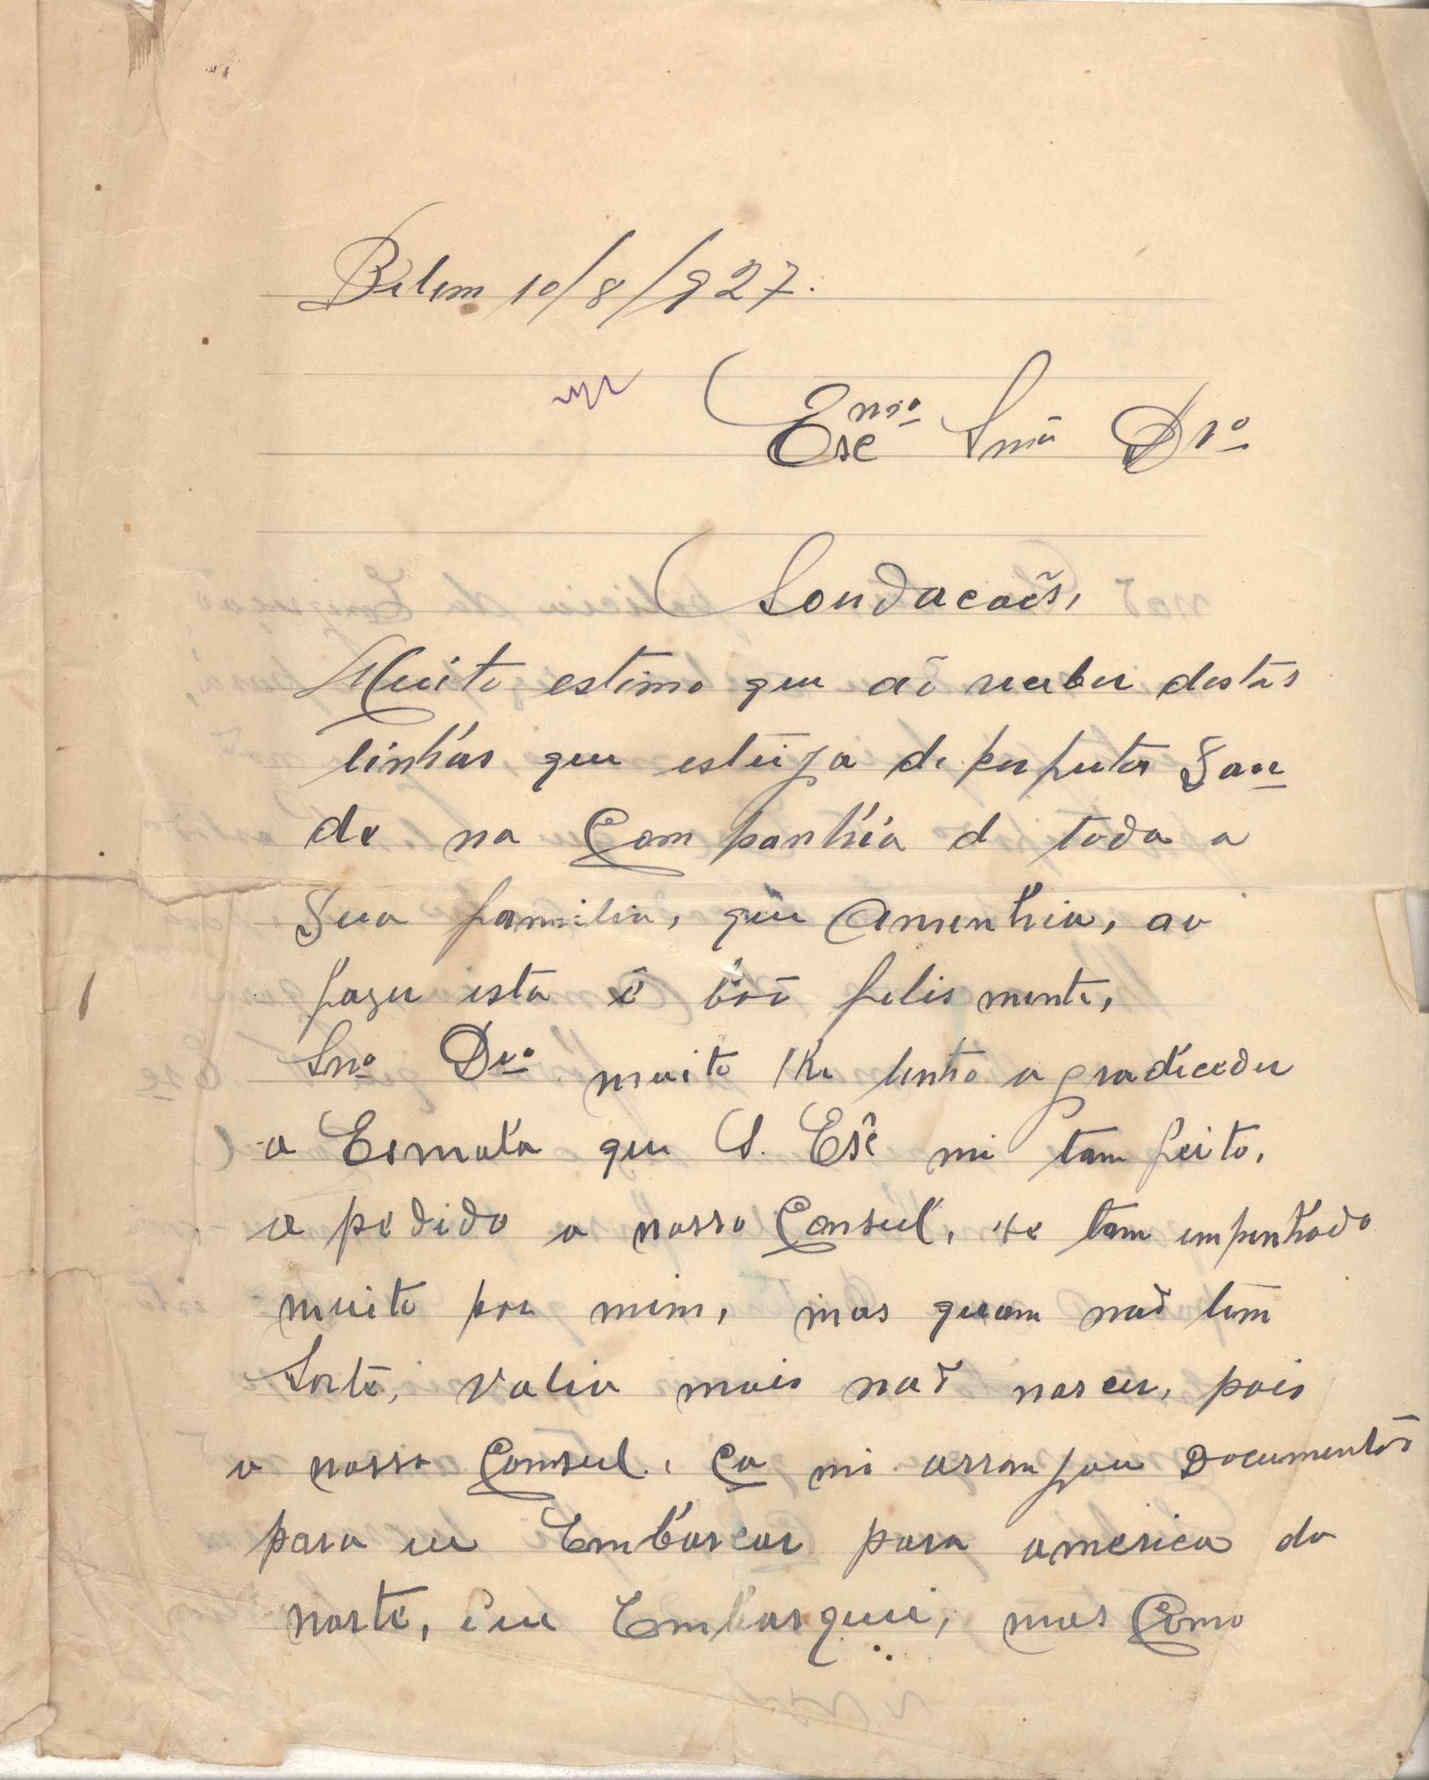 Belem 10/8/927.
Esc.mo Snr. Dro
Soudacoẽs,
Muito estimo que aõ receber destas
linhas que esteija de perfeita Sau
de na Companhia d toda a
Sua familia, que a menhia, ao
fazer esta é boã felis mente,
Snro Dro muito lhe tenho agradiceder
a Esmola que S. Esê mi tem feito,
a pedido o nosso Consul, se tem empenhado
muito por mim, mas quem naõ tem
Sorte, valia mais naõ nascer, pois
o nosso Consul, Ca mi arranjou Documentos
para eu Embarcar para america do
norte, Eu Embarquei, mas Como